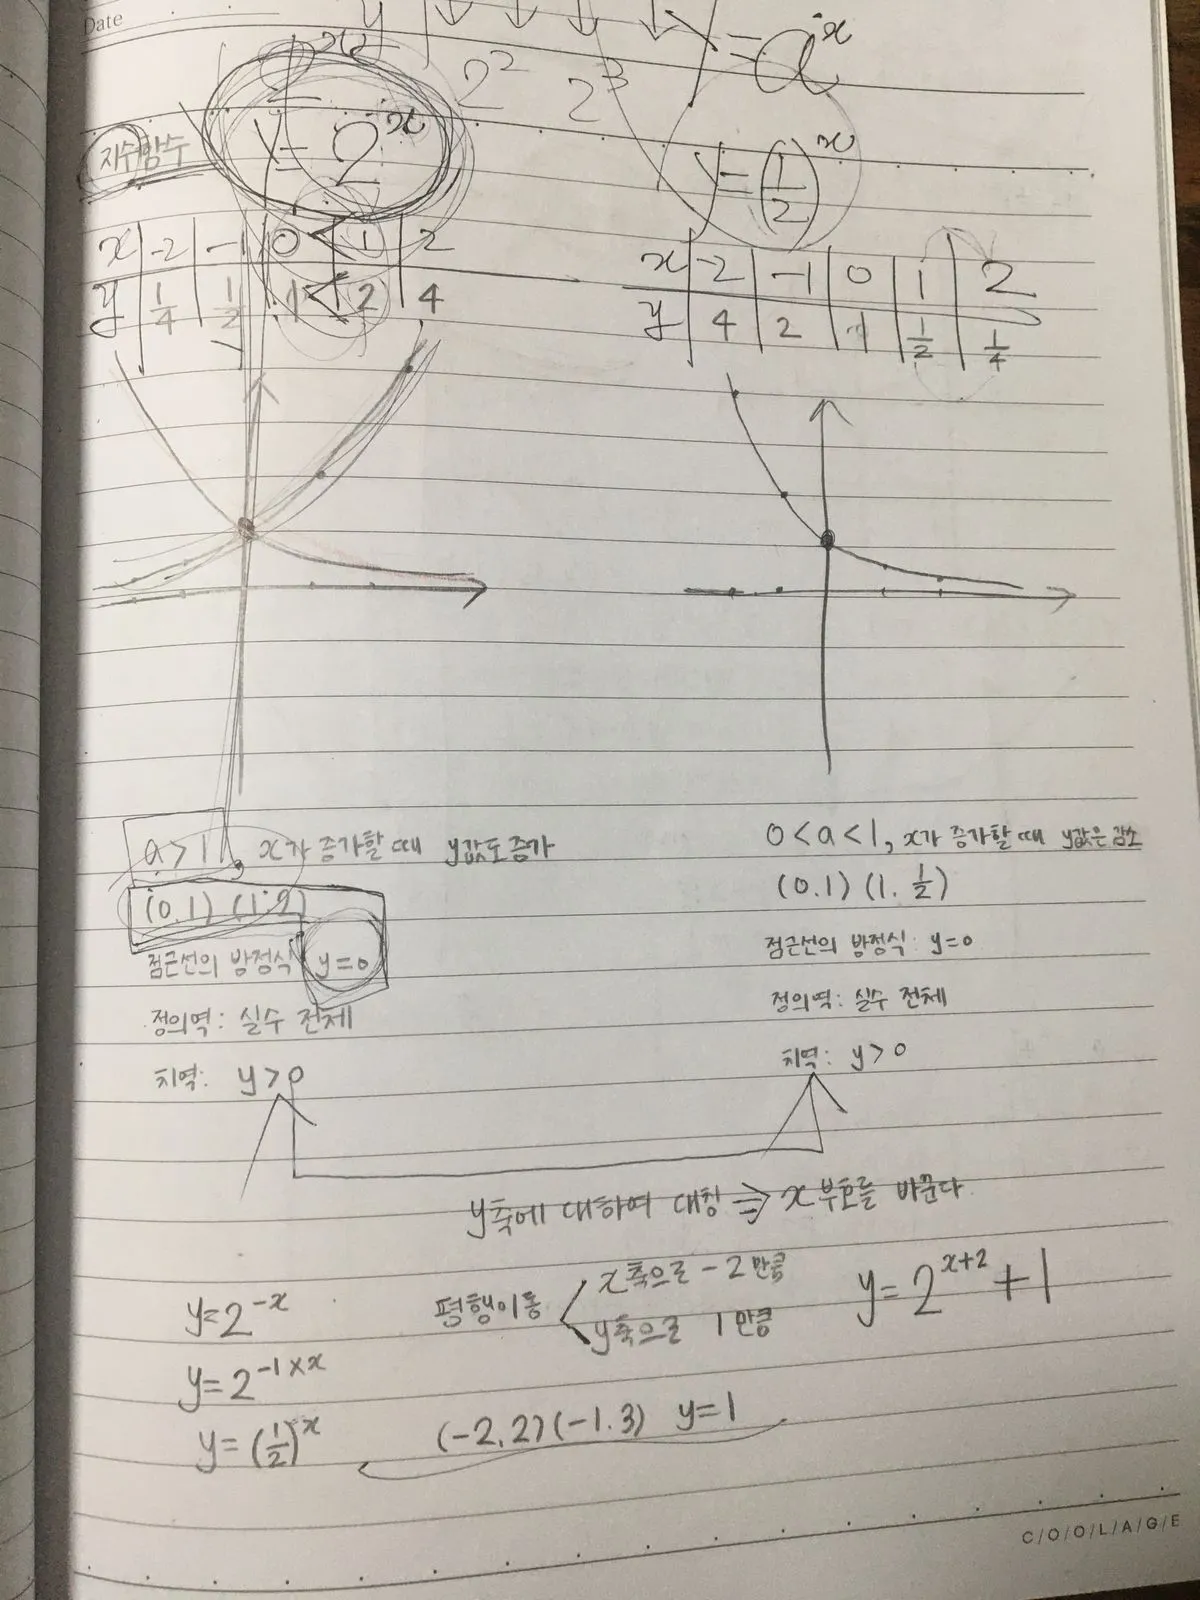 Date
y
2² 2³ y=aˣ
지수함수 y=2ˣ
y=(1/2)ˣ
x -2 -1 0 < 1 2
y 1/4 1/2 1 < 2 4
x -2 -1 0 1 2
y 4 2 1 1/2 1/4
a>1 x가 증가할 때 y값도 증가
(0.1) (1.2)
점근선의 방정식 y=0
정의역: 실수 전체
치역: y>0
0<a<1, x가 증가할 때 y값은 감소
(0.1) (1. 1/2)
점근선의 방정식: y=0
정의역: 실수 전체
치역: y>0
y축에 대하여 대칭 ⇒ x 부호를 바꾼다.
y=2⁻ˣ
y=2⁻¹ˣˣ
y=(1/2)ˣ
평행이동 x축으로 -2만큼
y축으로 1만큼
y=2ˣ⁺²+1
(-2,2) (-1.3) y=1
C/O/O/L/A/G/E